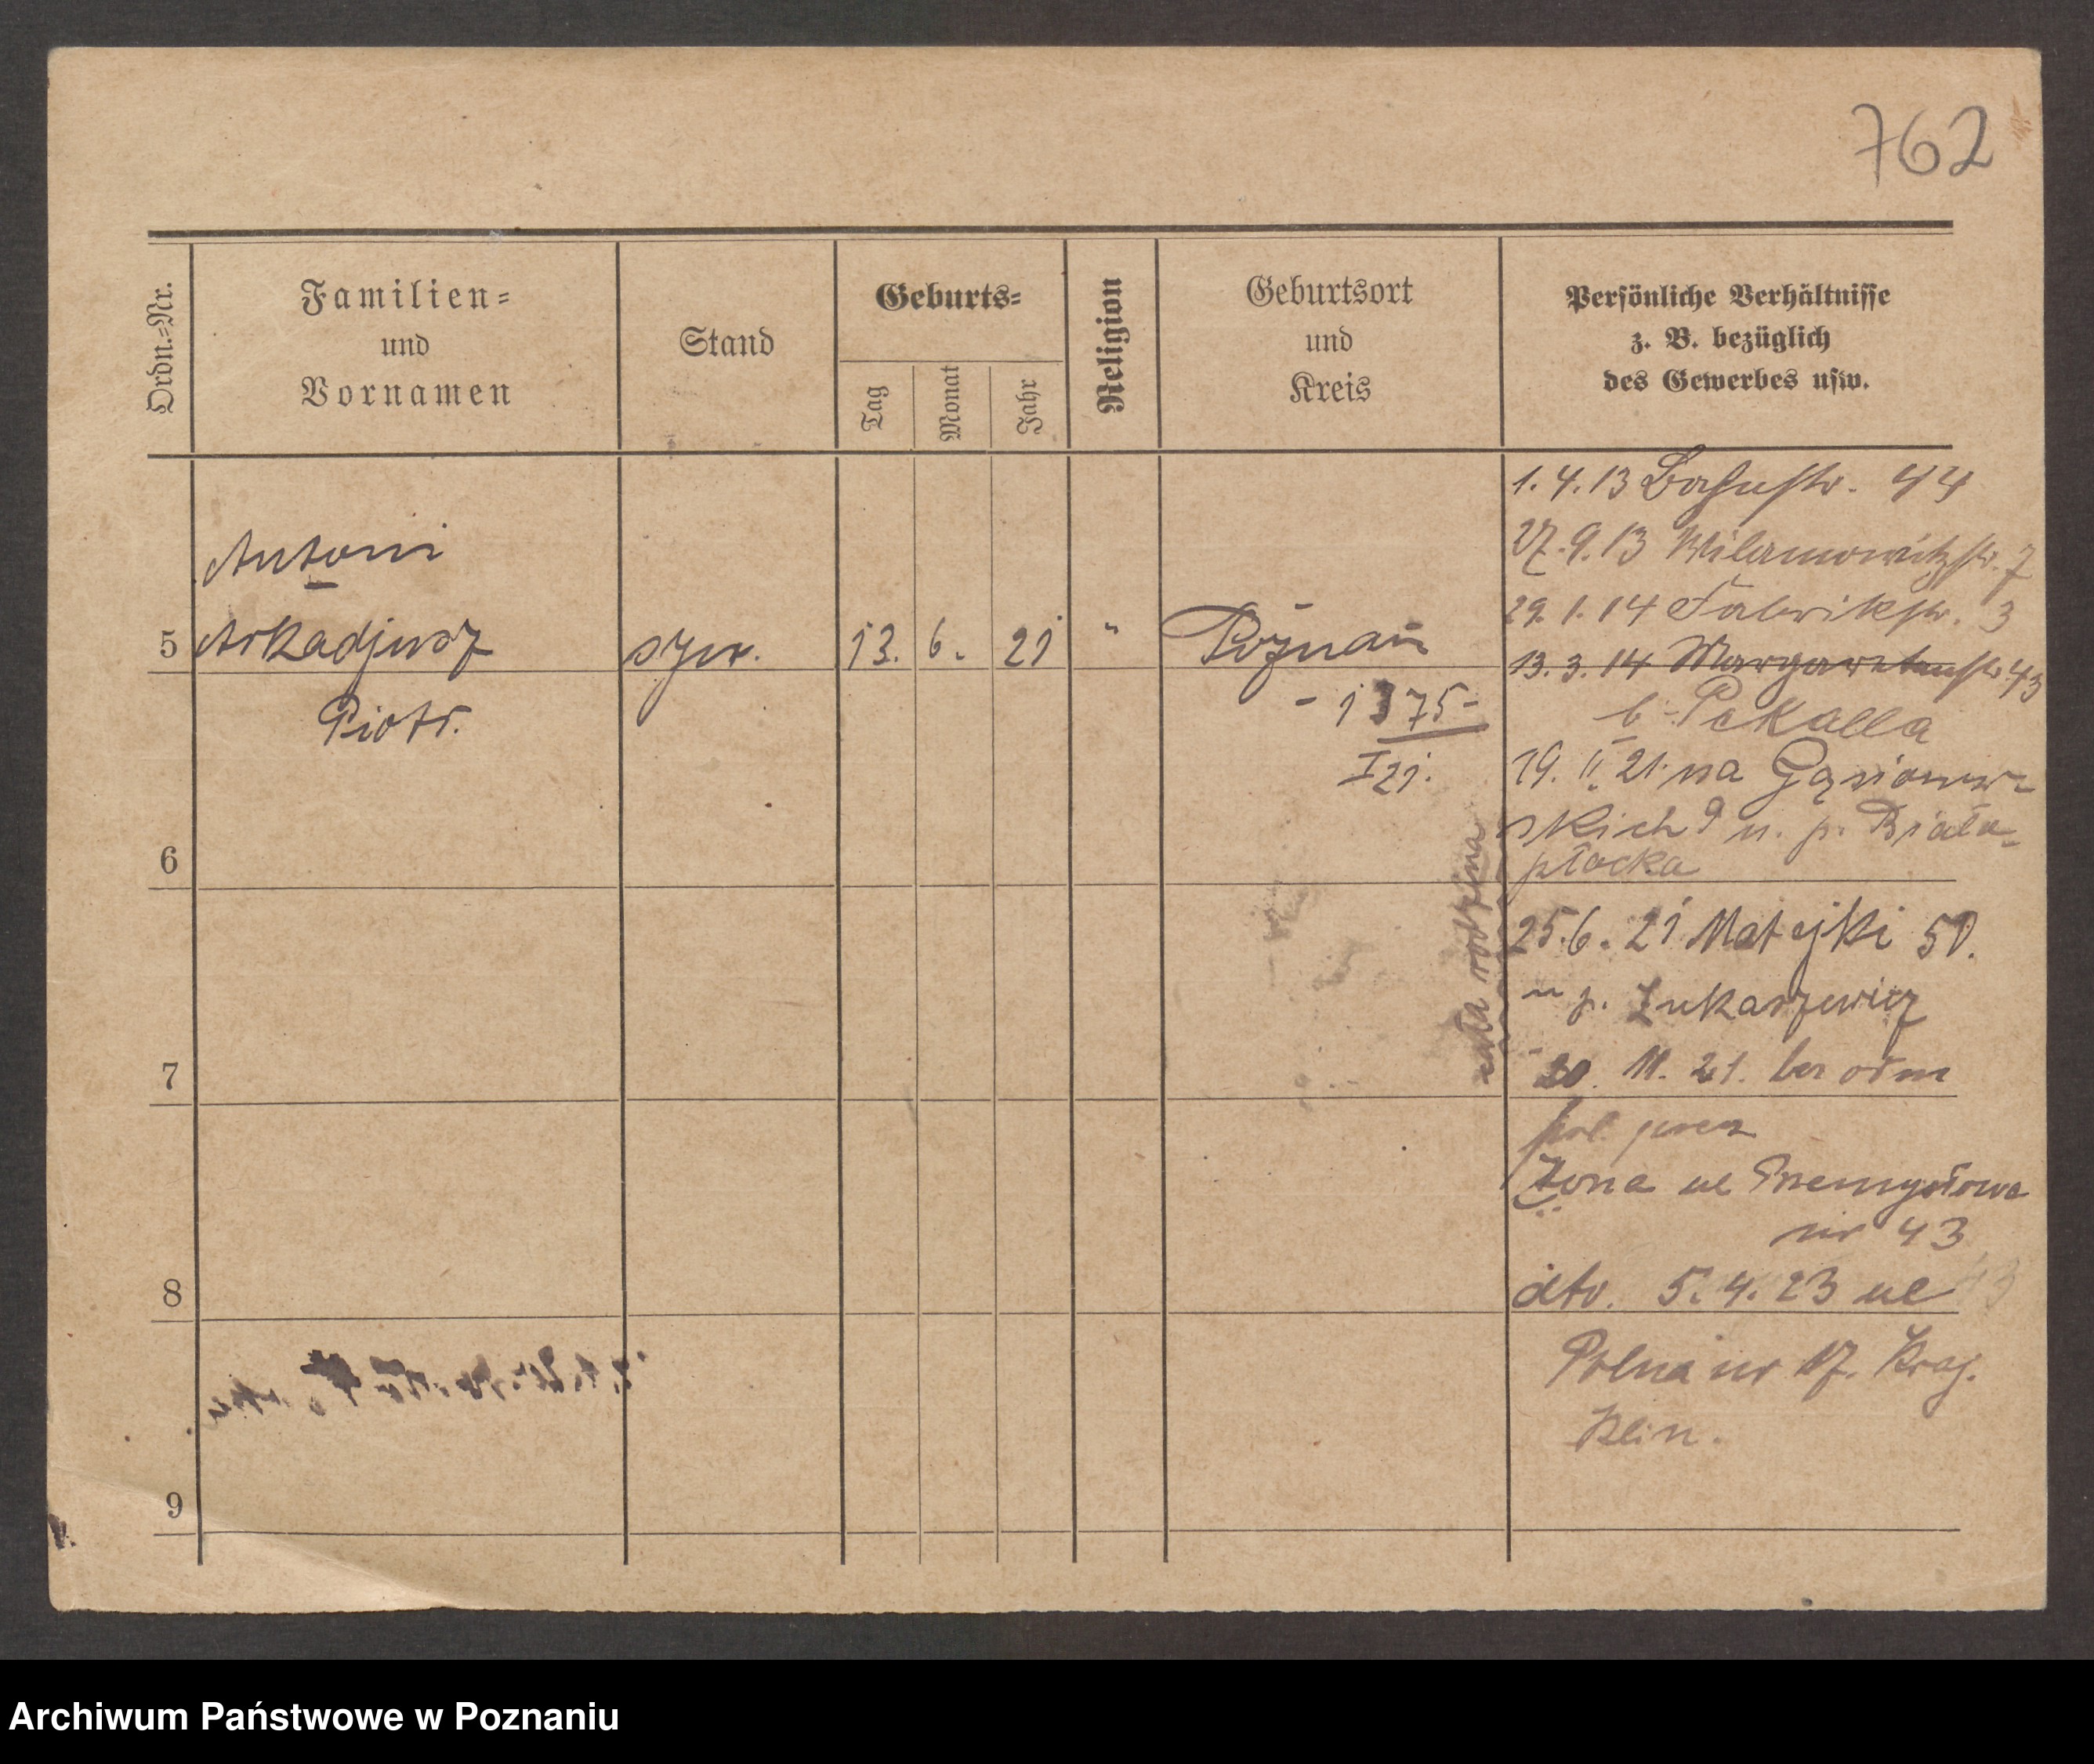 762
Ordn.-Nr.
Familien-
und
Vornamen
Stand
Geburts-
Tag
Monat
Jahr
Religion
Geburtsort
und
Kreis
Persönliche Verhältnisse
z. B. bezüglich
des Gewerbes usw.
Antoni
5 Arkadjusz syn. 13. 6. 21 " Poznań
Piotr.
- 1375 -
I 21.
1. 4. 13 Bahnstr. 44
27. 9. 13 Wilamowitzstr. 7
29. 1. 14 Fabrikstr. 3
13. 3. 14 Margaretenstr. 43
b. Pekalla
19. II 21. na Gąsiorow-
skich 9 u. p. Biała-
płocka
cała rodzina
25. 6. 21 Matejki 50.
u p. Łukaszewicz
20. 11. 21.
Żona ul Przemysłowa
nr 43
dto. 5. 4. 23 ul
Polna nr 17.
Klin.
6
7
8
9
Archiwum Państwowe w Poznaniu